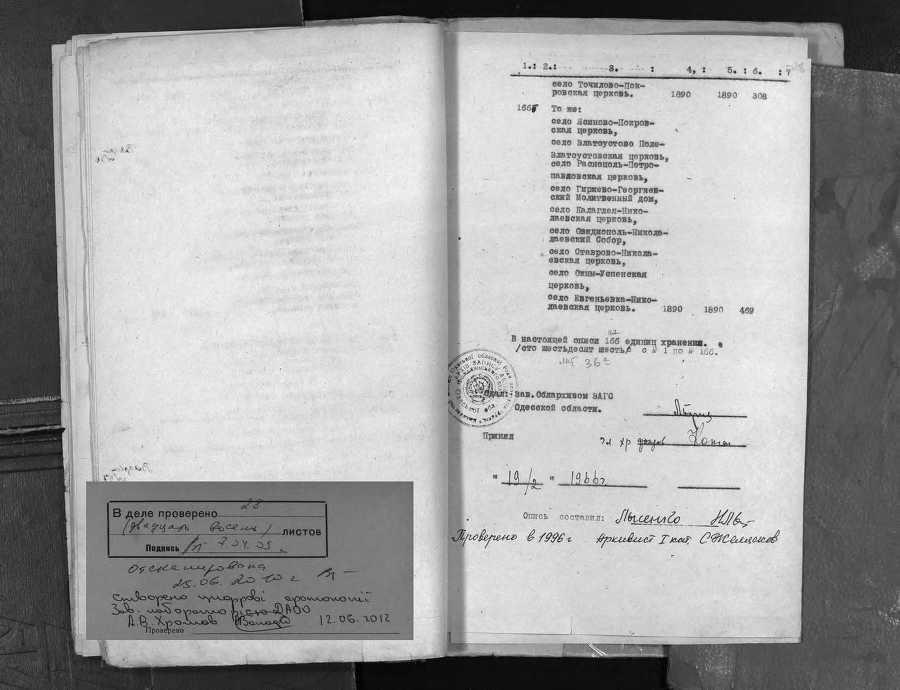 1.: 2.: 3. : 4, : 5. : 6. : 7
село Точилово-Пок-
ровская церковь. 1890 1890 308
166 То же:
село Ясиново-Покров-
ская церковь,
село Златоустово Поле-
Златоустовская церковь,
село Распополь-Петро-
павловская церковь,
село Гиржево-Георгиев-
ский Молитвенный дом,
село Калаглея-Нико-
лаевская церковь,
село Овидиополь-Никола-
лаевский Собор,
село Ставрово-Никола-
евская церковь,
село Окны-Успенская
церковь,
село Евгеньевка-Нико-
лаевская церковь. 1890 1890 469
В настоящей описи 166 единиц хранения.
/сто шестьдесят шесть/ с № 1 по № 166.
Сдал: Зав. Облархивом ЗАГС
Одесской области.
Принял
Гл. хр фондов
"19/2" 1966г.
Опись составил: Лысенко
Проверено в 1996 г Архивист I кат.
В деле проверено 28
(двадцать восемь) листов
Подпись 7.04.09г.
Отсканирована
25.06.2010 г
Створено цифрові фотокопії
Зав. лабораторією ДАОО
А.В. Хромов 12.06.2012
Проверено